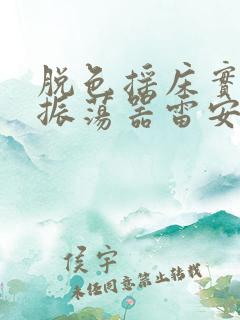 脱色摇床实
振荡器雷安
侯宇
未经同意禁止转载